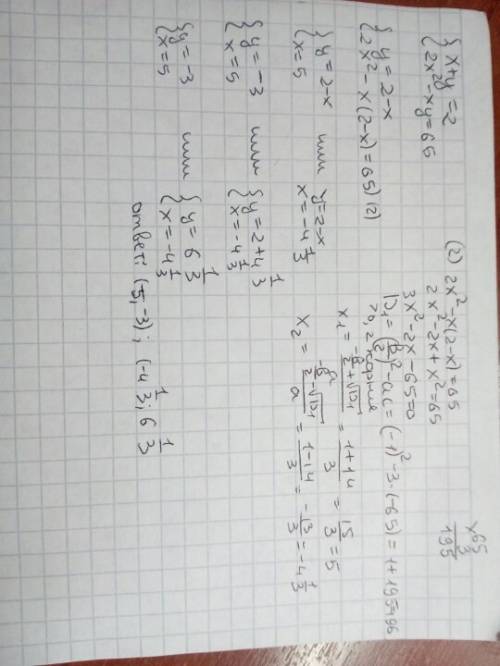 { x+y=2
{ 2x²-xy=65
{ y=2-x
{ 2x²-x(2-x)=65 (2)
{ y=2-x
{ x=5
или
y=2-x
x=-4 1/3
{ y=-3
{ x=5
или
{ y=2+4 1/3
{ x=-4 1/3
{ y=-3
{ x=5
или
{ y=6 1/3
{ x=-4 1/3
ответ: (5,-3); (-4 1/3; 6 1/3
(2) 2x²-x(2-x)=65
2x²-2x+x²=65
3x²-2x-65=0
D₁=(b/2)²-ac=(-1)²-3·(-65)=1+195=196
>0, 2 корня
x₁=(-b/2+√D₁)/a=(1+14)/3=15/3=5
x₂=(-b/2-√D₁)/a=(1-14)/3=-13/3=-4 1/3
×65
3
195